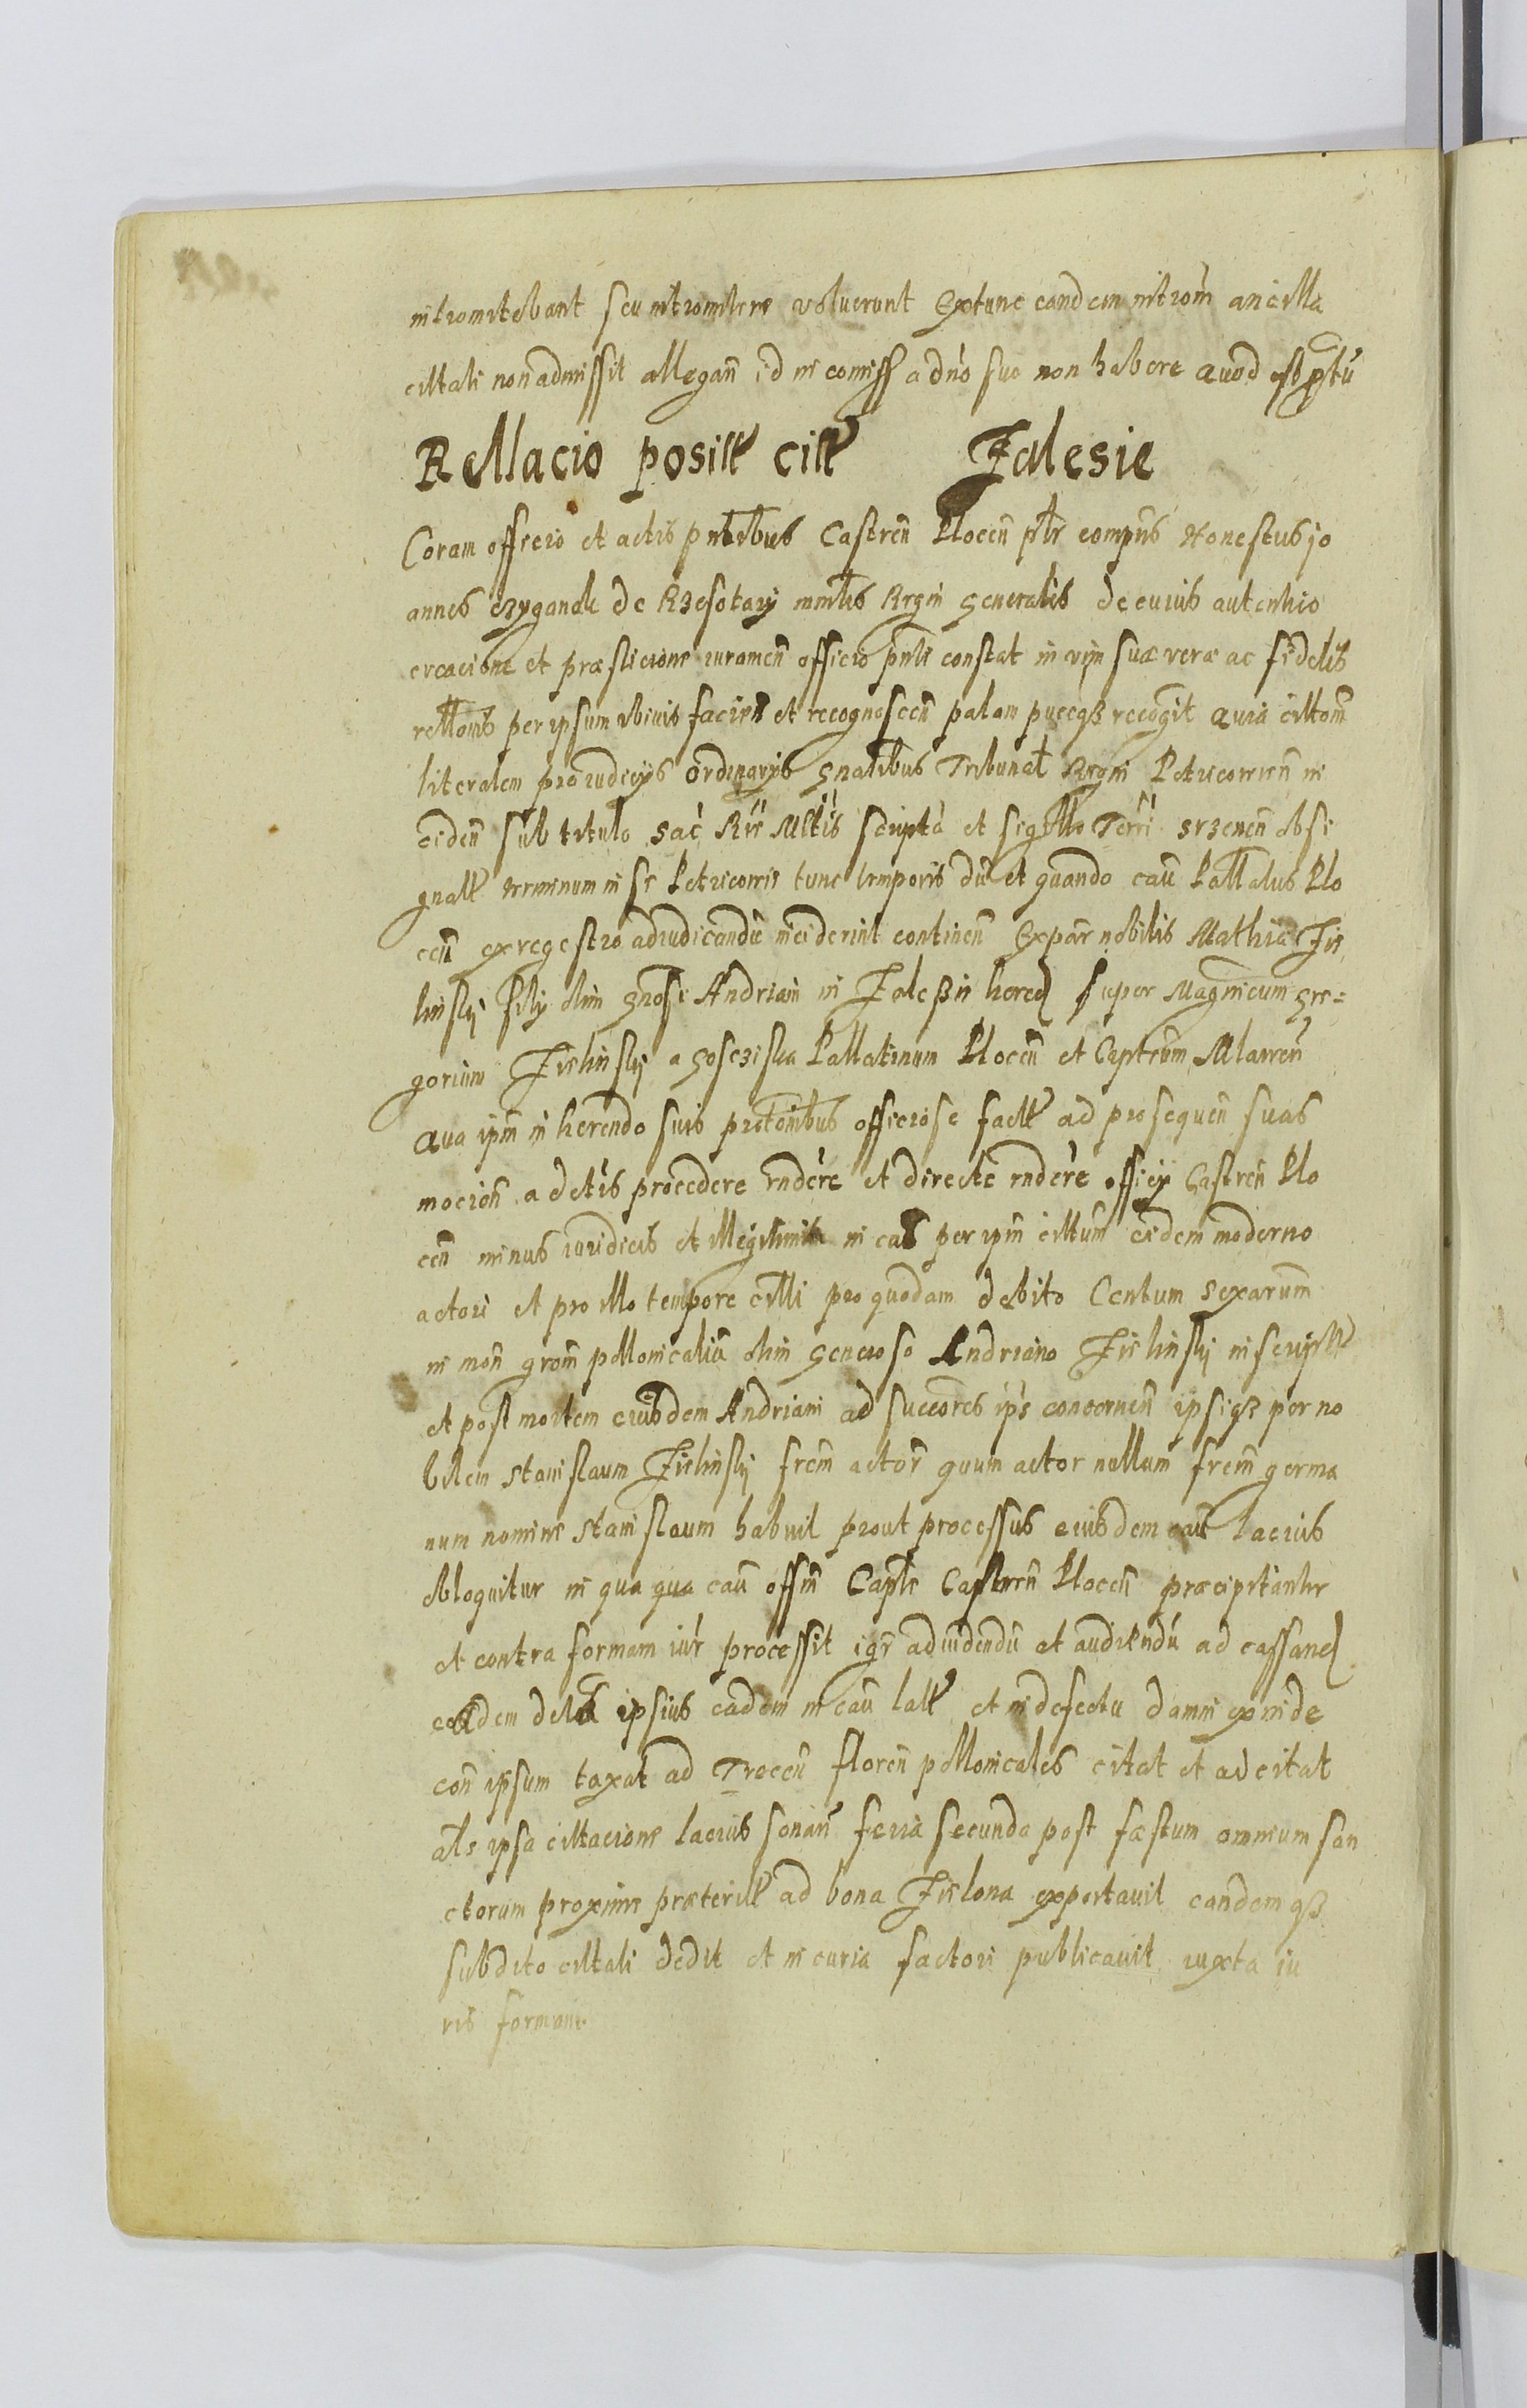 intromitebant seu intromitere voluerunt Extunc eandem introm̄ anc̄illa
cittati non admissit allegan̄ id in comiss a dn̄o suo non habere Quod est
Rellacio positt citt Zalesie
Coram officio et actis pn̄tibus Castren̄ Plocen̄ ptr comp̄ns Honestus Jo
annes czyganek de Rzesotarÿ mintlis Regni Generalis de cuius autentico
creacione et præsticione iuramen̄ officio pn̄ti constat in vim suæ veræ ac fidelis
rellonis per ipsum ubivis facien̄ et recognoscen̄ palam puceqß recogīt Quia cittom̄
literalem pro iudicÿs ordinarÿs gnalibus Tribunal Regni Petricovien̄ in
eiden̄ sub titulo Sac̄ Rīe Mltis scripta et sigillo Terri Srzenen̄ obsi
gnatt terminum in se Petricovie tunc temporis dū et quando cau Pallatus Plo
cen̄ ex regestro adiudicandū inciderint continen̄ Expar nobilis Mathia Zie
linskÿ filÿ olim Gnosi Andriani in Zaleßie hered super Magnicum Gre=
gorium Zielinskÿ a Gosczislka Pallatinum Plocen̄ et Capteum Mlawen̄
Qua ipm̄ in herendo suis protonibus officiose factt ad prosequen̄ suas
mocion̄ a detis procedere rndere et directe rndere officÿ Castren̄ Plo
cen̄ minus iuridicis et illegitimis in cau per ipm̄ cittum eidem moderno
actori et pro illo tempore citti pro quodam debito Centum sexarum
in mon̄ grom̄ pollonicaliū olim Generoso Andriano Zielinskÿ inscriptt
et post mortem eiusdem Andriani ad succores ips concernen̄ ipsiqß per no
bilem Stanislaum Zielinskÿ frem̄ actor̄ quum actor nullum frem̄ germa
num nomine Stanislaum habuit prout processus eiusdem cau lacius
obloquitur in qua qua cau offm̄ Captle Castren̄ Plocen̄ præcipitanter
et contra formam iur̄ processit igr̄ ad videndū et audiendū ad cassand
eadem deta ipsius eadem in cau latt et in defectu damni exinde
con̄ ipsum taxat ad Trecen̄ floren̄ pollonicales citat et ad citat
als ipsa cittacione lacius sonan̄ feria secunda post fæstum omnium san
ctorum proxime præteritt ad bona Zielona exportavit eandemqß
subdito cittati dedit et in curia factori publicavit iuxta iu
ris formam.